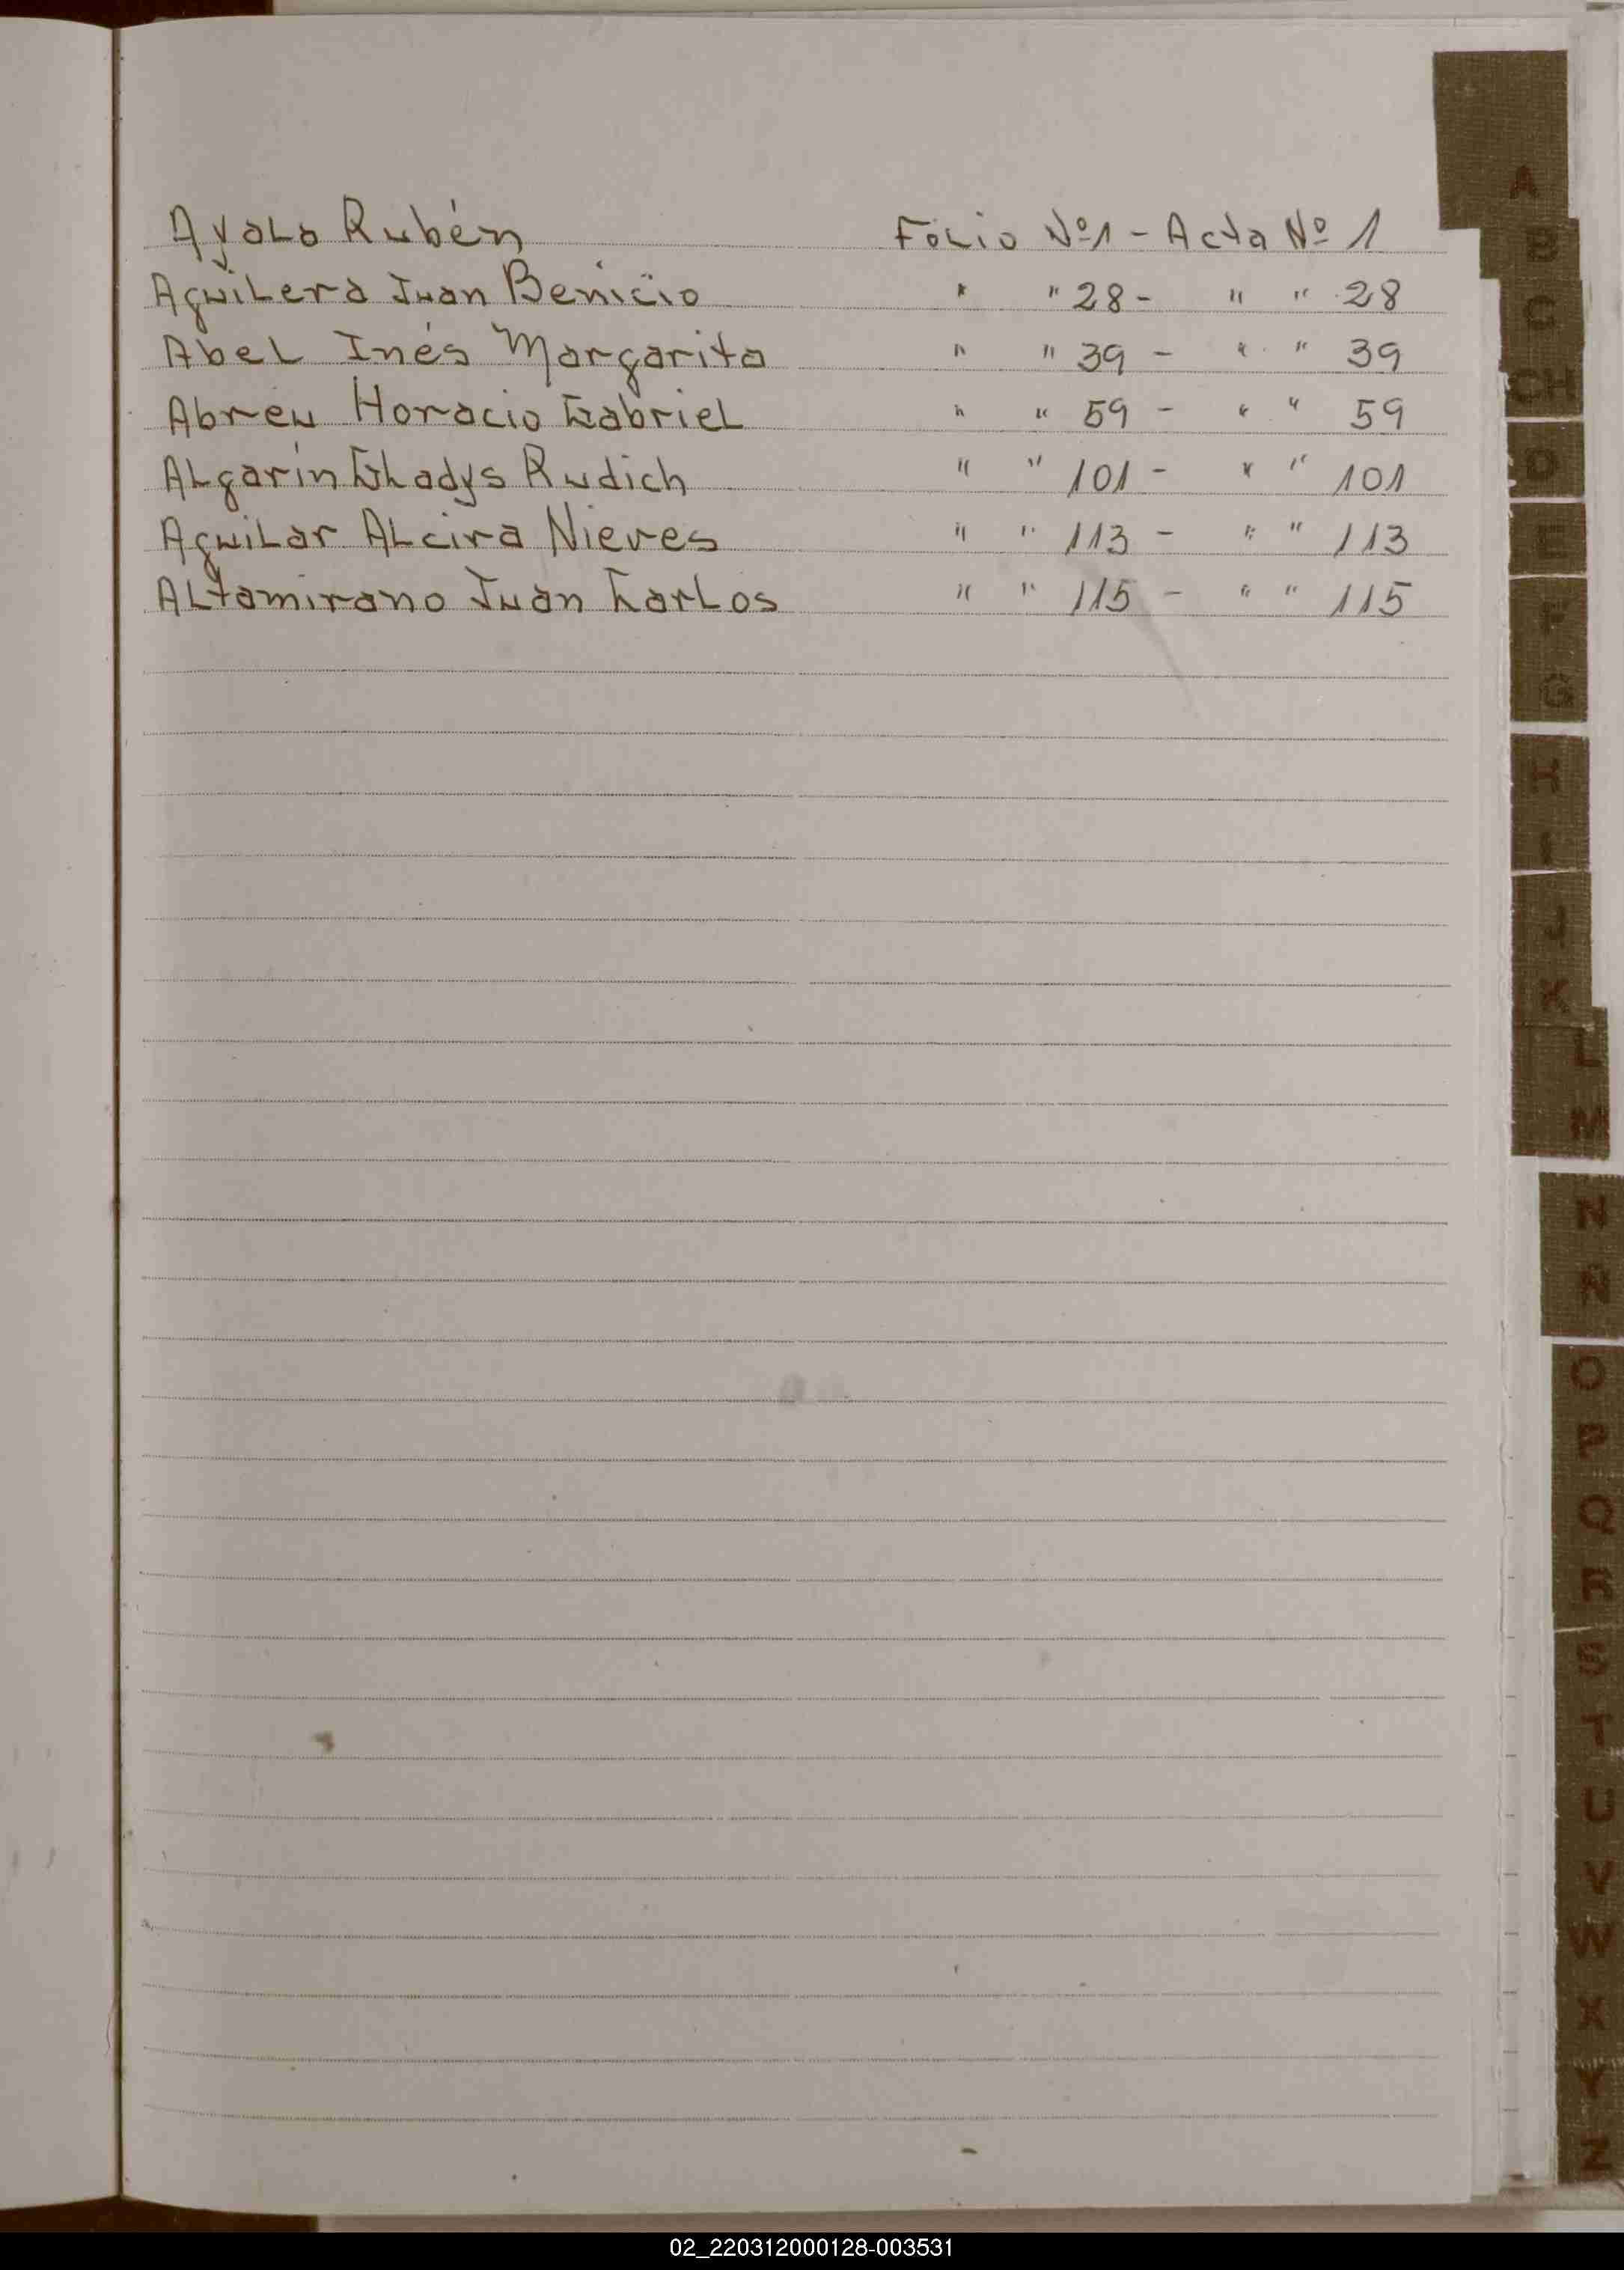 Ayala Rubén Folio Nº1 - Acta Nº 1
Aguilera Juan Benicio " " 28 - " " 28
Abel Inés Margarita " " 39 - " " 39
Abreu Horacio Gabriel " " 59 - " " 59
Algarín Gladys Rudich " " 101 - " " 101
Aguilar Alcira Nieves " " 113 - " " 113
Altamirano Juan Carlos " " 115 - " " 115
A
B
C
CH
D
E
F
G
H
I
J
K
L
M
N
Ñ
O
P
Q
R
S
T
U
V
W
X
Y
Z
02_220312000128-003531